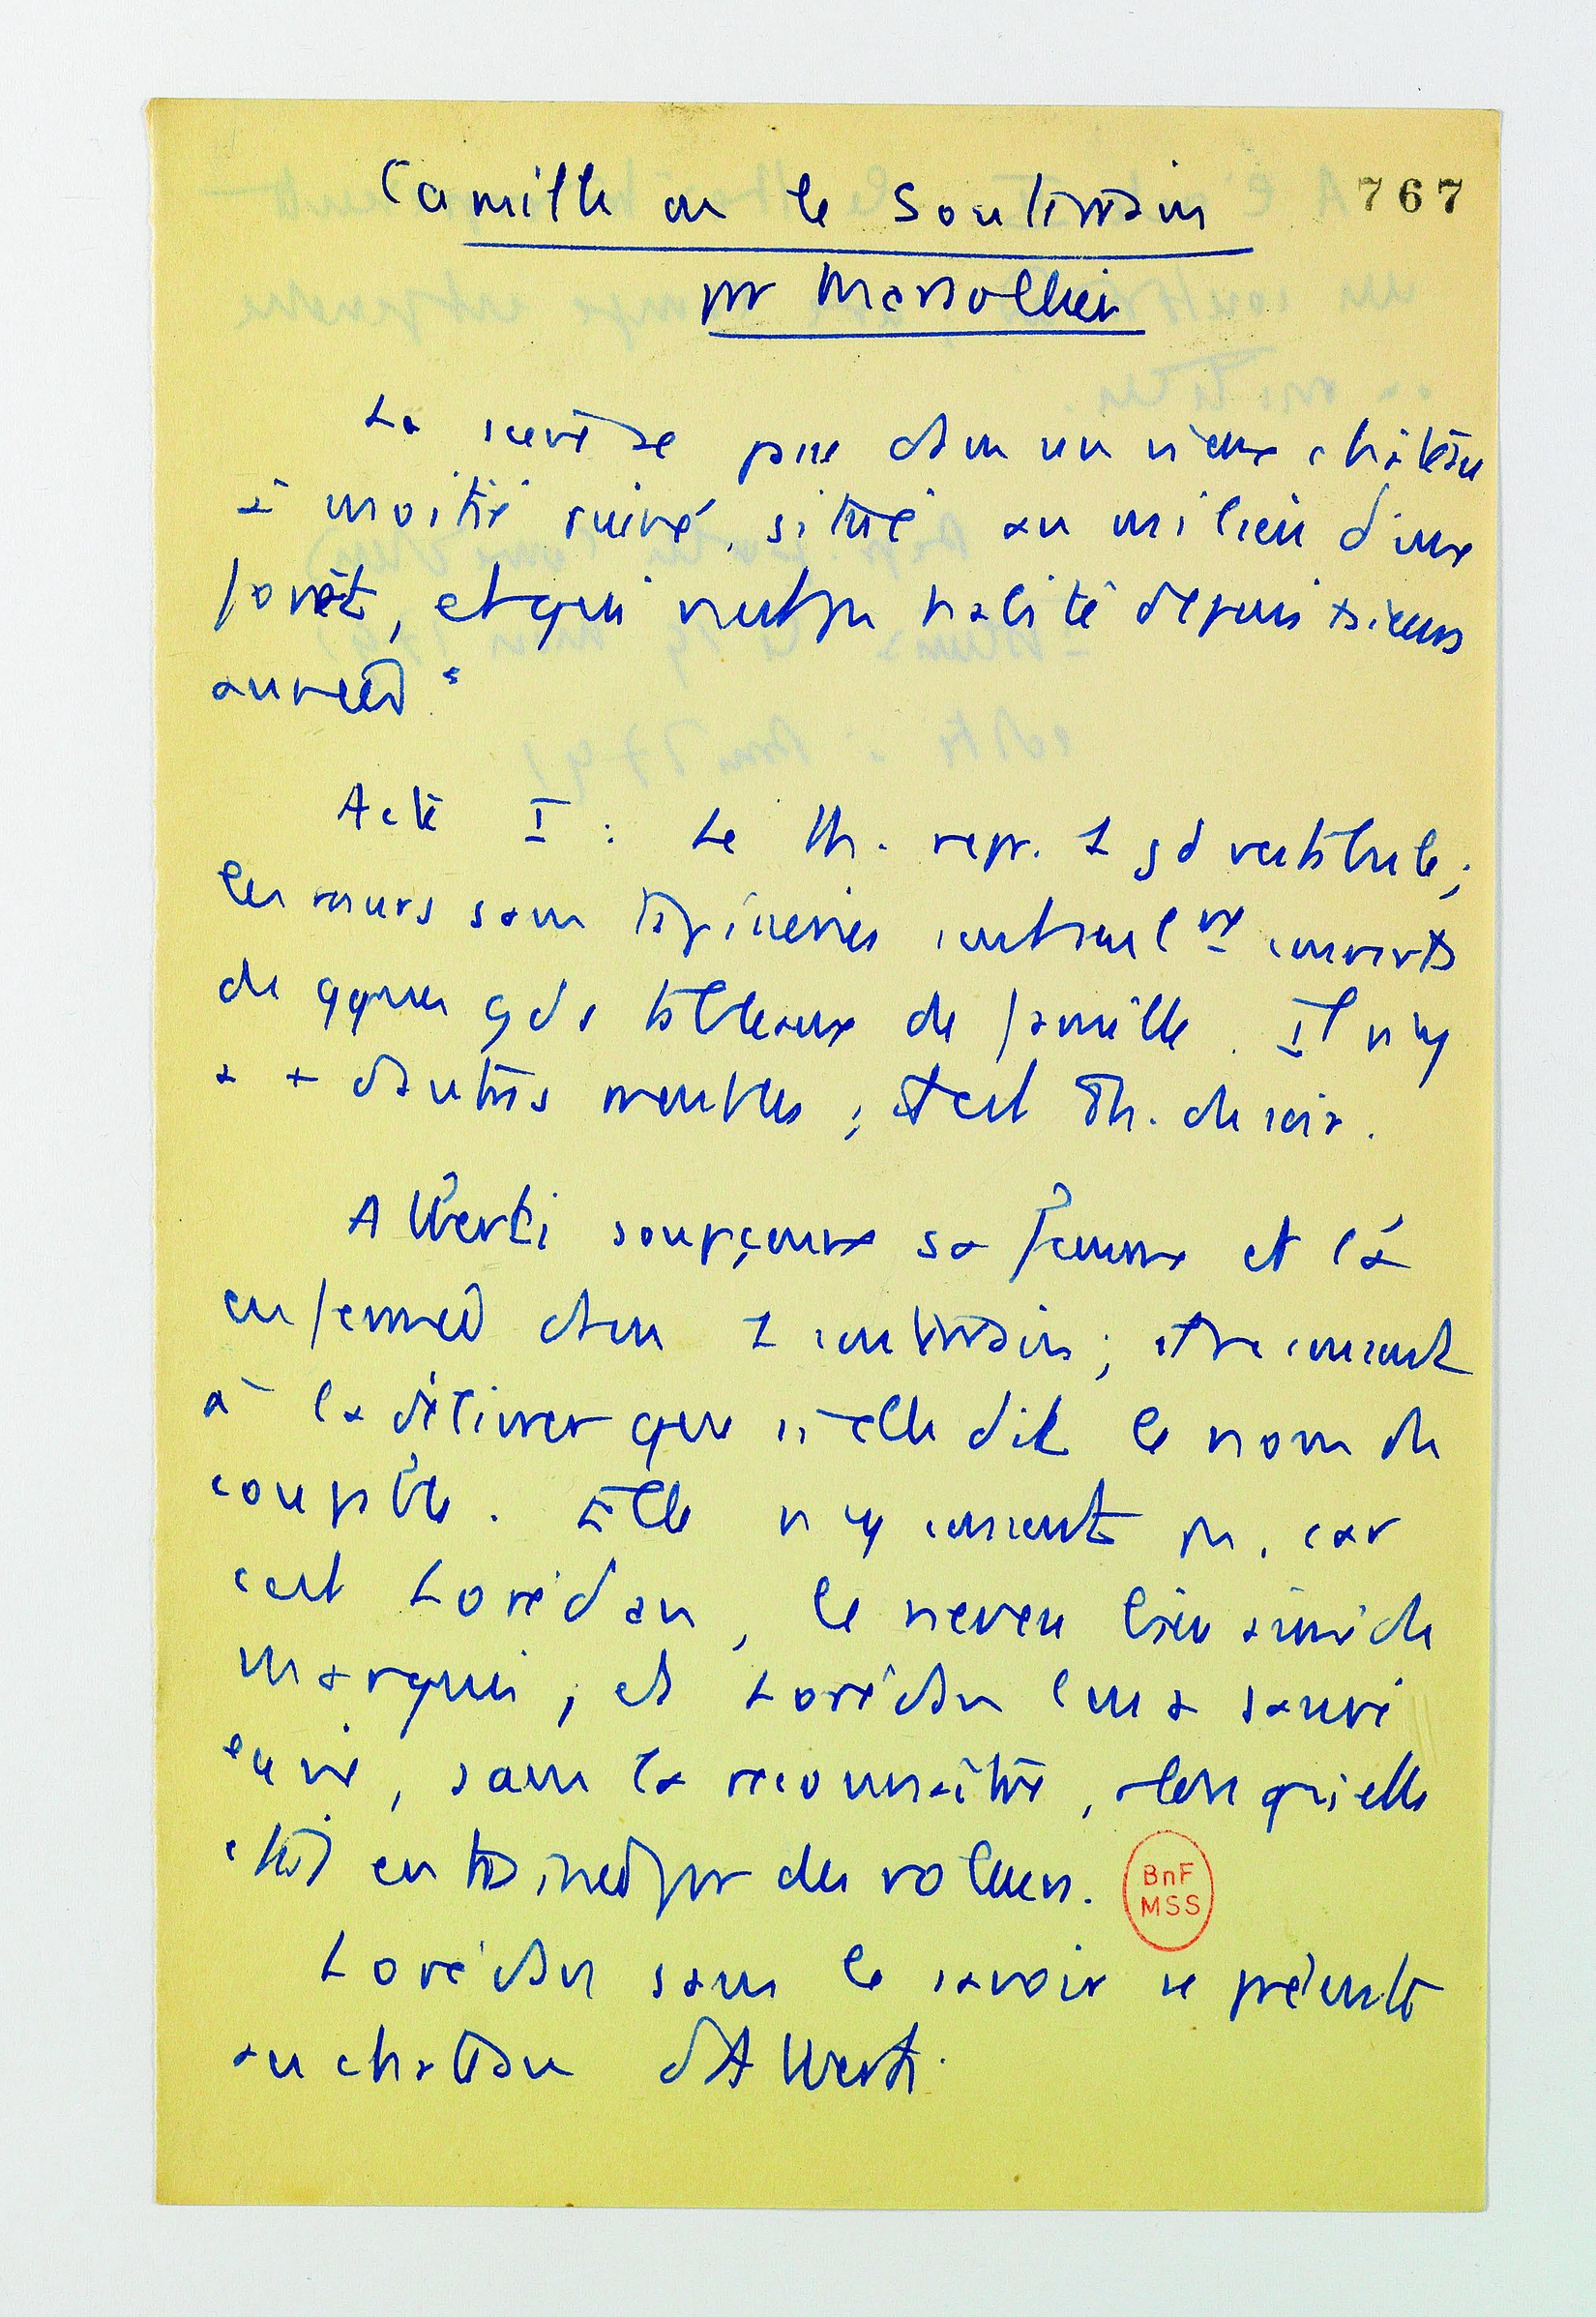 Camille ou le Souterrain
767
par Marsollier
La scène se passe dans un vieux château
à moitié ruiné, situé au milieu d'une
forêt, et qui n'est pas habité depuis plusieurs
années
Acte I : Le th. repr. 1 gd vestibule ;
les murs sans tapisseries sont seulemt couverts
de qques gds tableaux de famille. Il n'y
a + d'autres meubles ; et est éch. de soir.
Alberti soupçonne sa femme et l'a
enfermée dans 1 souterrain ; il ne consent
à la délivrer que si elle dit le nom du
coupable. Elle n'y consent pas, car
c'est Lorédan, le neveu bien aimé du
marquis, et Lorédan lui a sauvé
la vie, sans la reconnaître, alors qu'elle
était entraînée par des voleurs.
BnF
MSS
Lorédan sans le savoir se présente
au château d'Alberti.